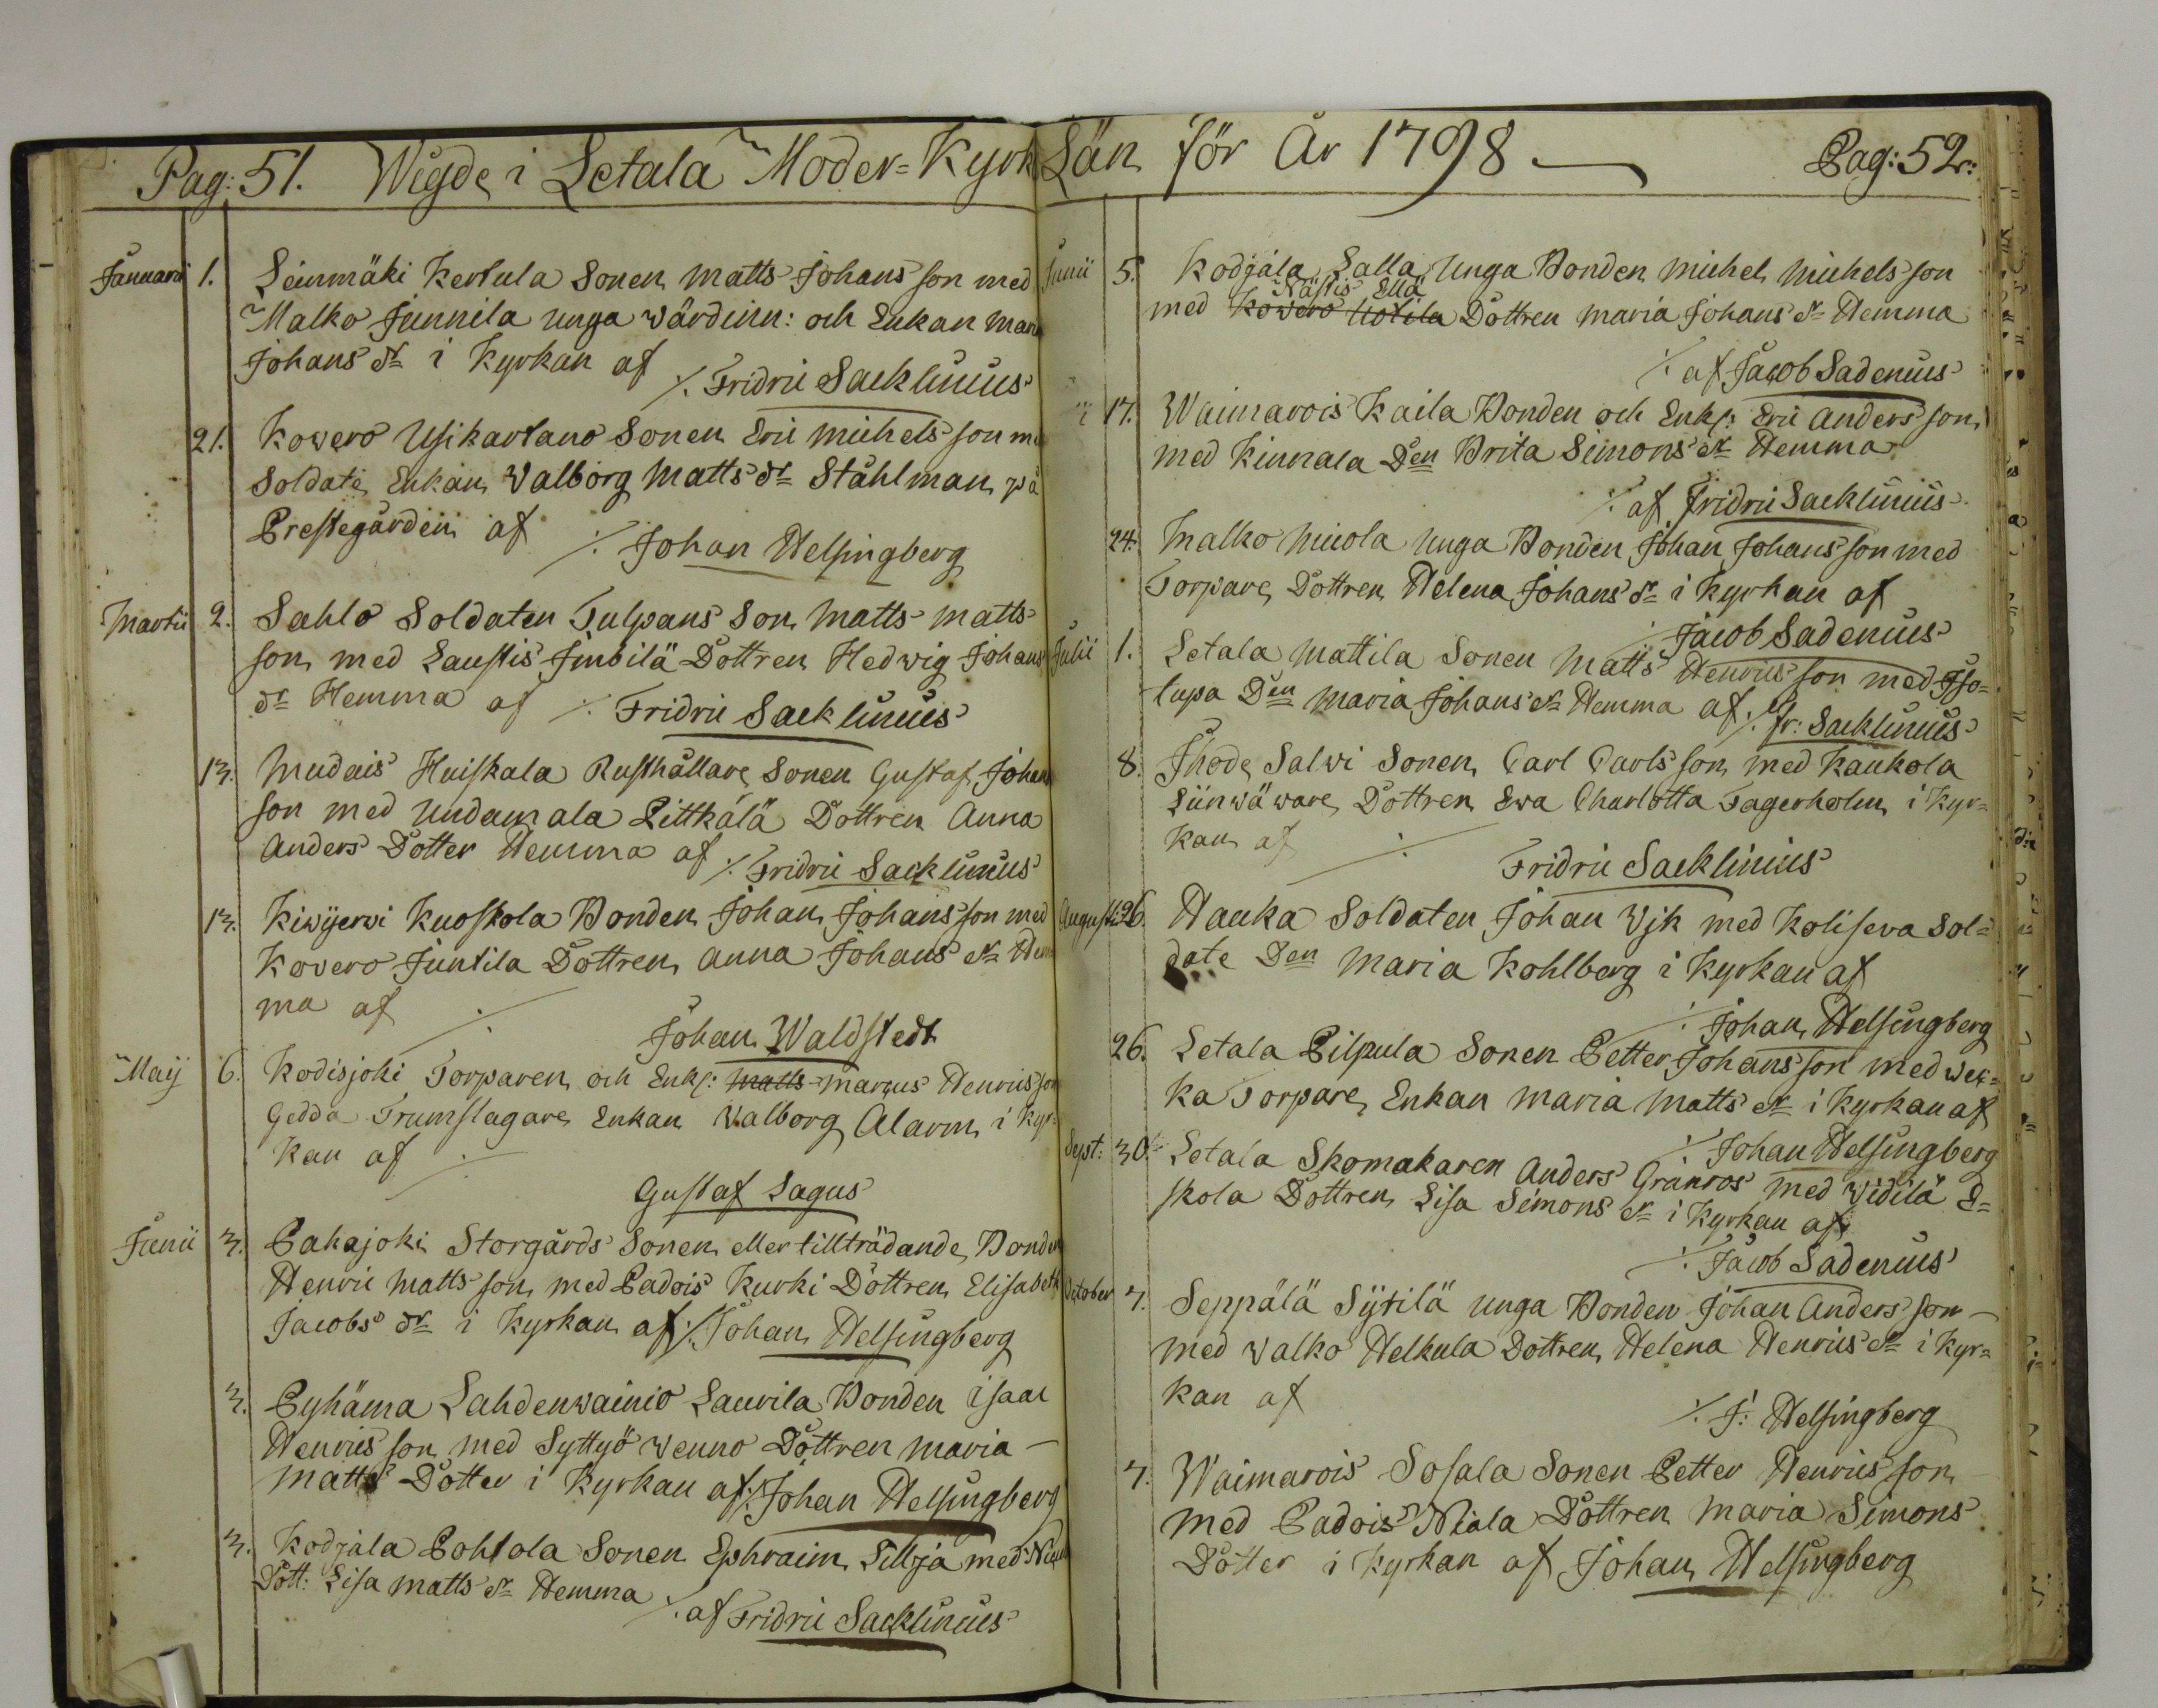 Pag: 51. Wigde i Letala Moder=Kyrk
Januarii 1. Leinmäki Kertula Sonen Matts Johans son med
Malko Junnila unga wärdinn: och Enkan Maria
Johans dr i Kyrkan af
./. Fridric Sacklinius
21. Kowero Usikartano Sonen Eric Michels son med
Soldats Enkan Walborg Matts dr Ståhlman på
Prestegården af ./. Johan Helsingberg
Martii 2. Sahlo Soldaten Tulpans Son Matts Matts
son med Laustis Simbilä Dottren Hedwig Johans
dr Hemma af ./. Fridric Sacklinius
13. Mudais Huiskala Rusthållare Sonen Gustaf Johans
son med Undamala Pittkälä Dottren Anna
Anders Dotter Hemma af ./. Fridric Sacklinius
13. Kiwijerwi Kuoskola Bonden Johan Johans son med
Kovero Juntila Dottren Anna Johans dr Hem
ma af ./.
Johan Waldstedt
Maij 6. Kodisjoki Torparen och Enkl: Matts Marcus Henrics son
Gedda Trumslagare Enkan Walborg Alarm i Kyr=
kan af ./.
Gustaf Lagus
Junii 3. Pahajoki Storgårds Sonen eller tillträdande Bonden
Henric Matts son med Padois Kurki Dottren Elisabeth
Jacobs dr i Kyrkan af ./. Johan Helsingberg
3. Pyhäma Lahdenwainio Laurila Bonden Isaac
Henrics son med Syttyö Wenno Dottren Maria
Matts Dotter i Kyrkan af ./. Johan Helsingberg
3. Kodjala Pohtola Sonen Ephraim Lillja med
Dott: Lisa Matts dr Hemma
./. af Fridric Sacklinius
Län för År 1798 Pag: 52:
Junii 5. Kodjala Salla Unga Bonden Michel Michels son
Nästis Ellä
med Kowero Uotila Dottren Maria Johans dr Hemma
./. af Jacob Sadenius
17. Waimarois Kaila Bonden och Enkl: Eric Anders son
med Kinnala Den Brita Simons dr Hemma
./. af Fridric Sacklinius
24. Malko Micola Unga Bonden Johan Johans son med
Torpare Dottren Helena Johans dr i Kyrkan af
./. Jacob Sadenius
Julii 1. Letala Mattila Sonen Matts Henrics son med Iso=
tupa Den Maria Johans dr Hemma af ./. Fr: Sacklinius
8. Ihode Salwi Sonen Carl Carls son med Kaukola
Linwäware Dottren Ewa Charlotta Fagerholm i Kyr=
kan af ./.
Fridric Sacklinius
Augusti 26. Hauka Soldaten Johan Wjk med Koliseva Sol=
date Den Maria Kohlberg i Kyrkan af
./. Johan Helsingberg
26. Letala Pilpula Sonen Petter Johans son med Wek=
ka Torpare Enkan Maria Matts dr i Kyrkan af
./. Johan Helsingberg
Sept: 30. Letala Skomakaren Anders Granros med Widilä E=
skola Dottren Lisa Simons dr i Kyrkan af
./. Jacob Sadenius
October 7. Seppälä Sÿtilä unga Bonden Johan Anders son
med Walko Helkula Dottren Helena Henrics dr i Kyr=
kan af
./. J: Helsingberg
7. Waimarois Sosala Sonen Petter Henrics son
med Padois Niala Dottren Maria Simons
Dotter i Kyrkan af Johan Helsingberg